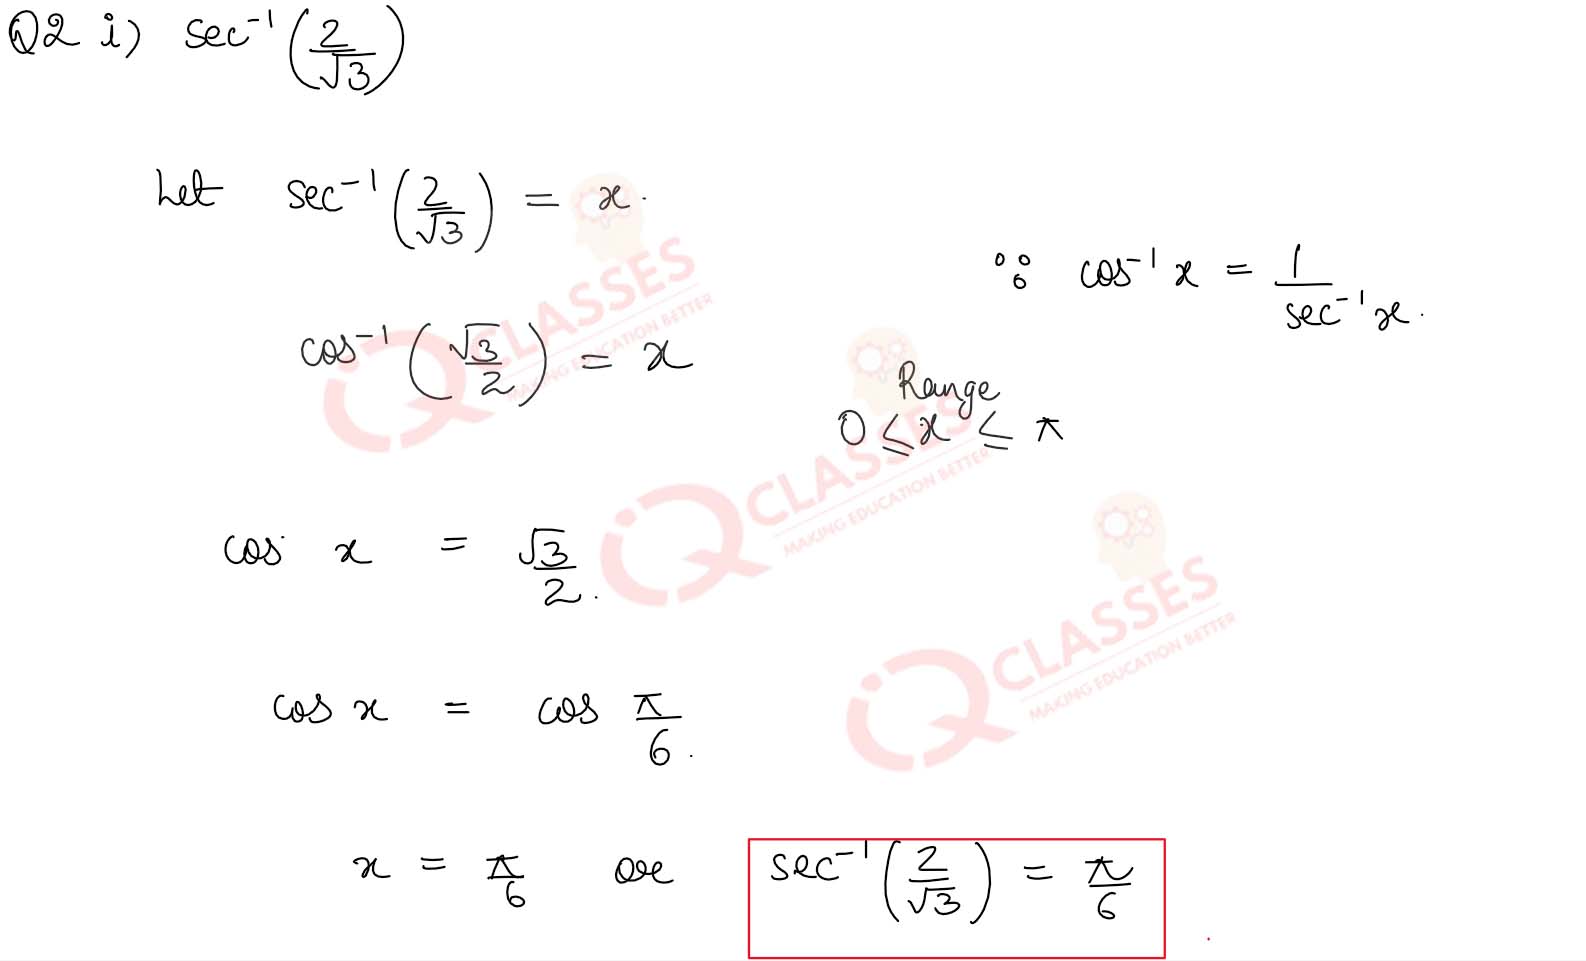 Q2 i) sec⁻¹(2/√3)
Let sec⁻¹(2/√3) = x.
∵ cos⁻¹ x = 1/sec⁻¹ x.
cos⁻¹(√3/2) = x
Range
0 ≤ x ≤ π
cos x = √3/2.
cos x = cos π/6.
x = π/6 or sec⁻¹(2/√3) = π/6
iQ CLASSES
MAKING EDUCATION BETTER
iQ CLASSES
MAKING EDUCATION BETTER
iQ CLASSES
MAKING EDUCATION BETTER